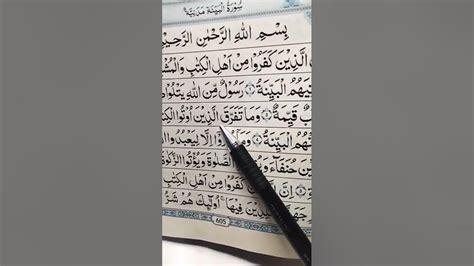 سُوْرَةُ الْبَيِّنَةِ مَدَنِيَّةٌ
بِسْمِ اللّٰهِ الرَّحْمٰنِ الرَّحِيْمِ
الَّذِيْنَ كَفَرُوْا مِنْ اَهْلِ الْكِتٰبِ وَالْمُشْ
تِيَهُمُ الْبَيِّنَةُ ۱ رَسُوْلٌ مِّنَ اللّٰهِ يَتْلُوْا
بٌ قَيِّمَةٌ ۳ وَمَا تَفَرَّقَ الَّذِيْنَ اُوْتُوا الْكِتٰ
تْهُمُ الْبَيِّنَةُ ۴ وَمَا اِلَّا لِيَعْبُدُوا
يْنَ حُنَفَآءَ وَيُ الصَّلٰوةَ وَيُؤْتُوا الزَّكٰوةَ
۵ اِنَّ الَّ كَفَرُوْا مِنْ اَهْلِ الْكِتٰبِ
جَهَ لِدِيْنَ فِيْهَا ؕ اُولٰٓئِكَ هُمْ شَرُّ
605